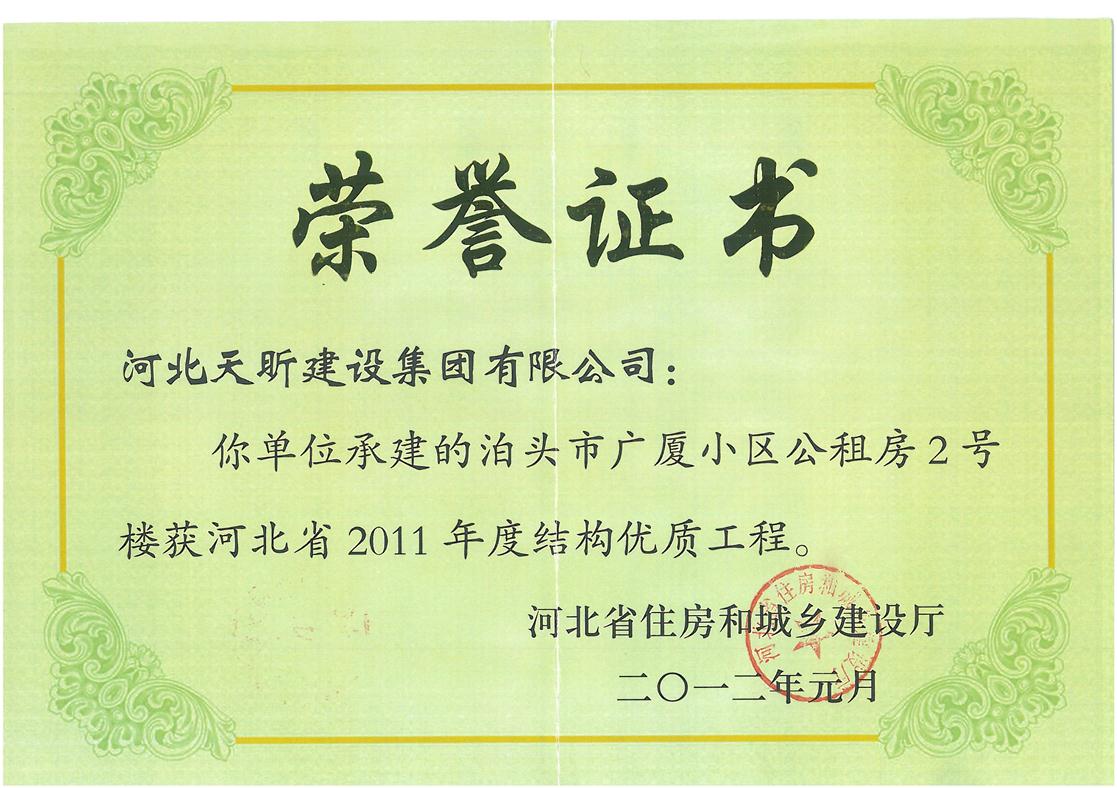 荣誉证书
河北天昕建设集团有限公司：
你单位承建的泊头市广厦小区公租房2号
楼获河北省2011年度结构优质工程。
河北省住房和城乡建设厅
二〇一二年元月